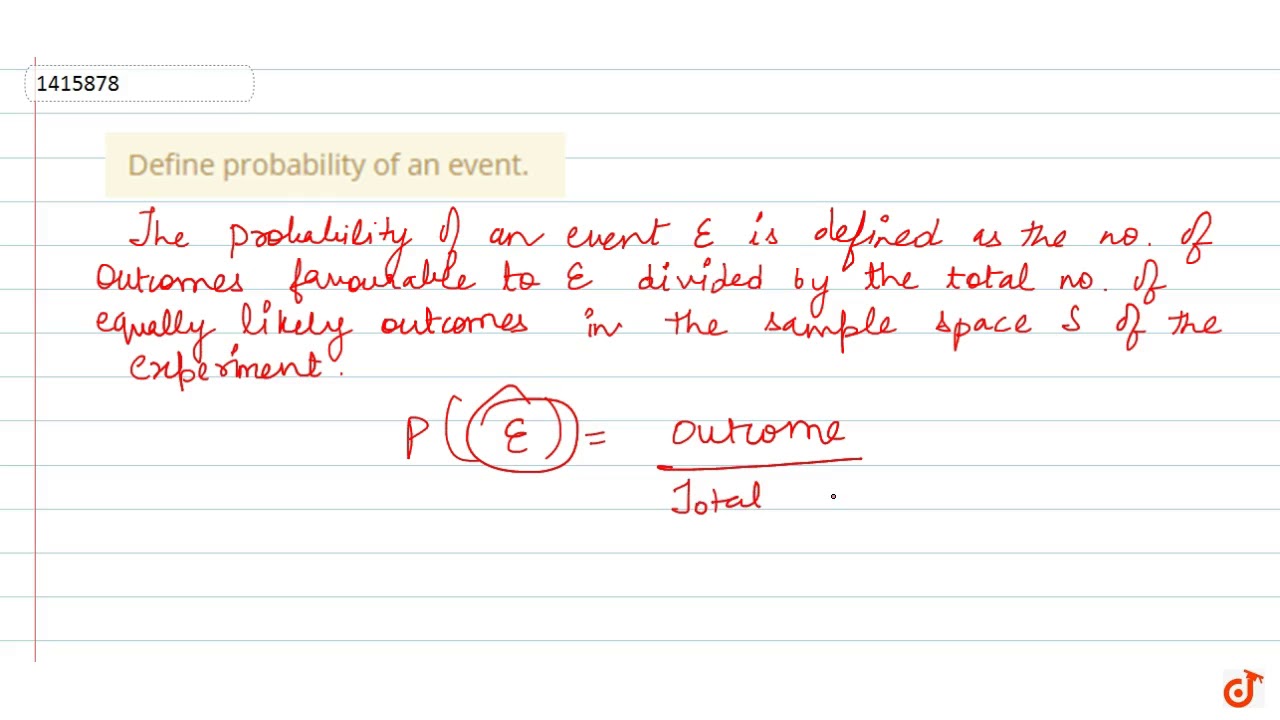 1415878
Define probability of an event.
The probability of an event E is defined as the no. of
outcomes favourable to E divided by the total no. of
equally likely outcomes in the sample space S of the
experiment.
P(E) = outcome
Total